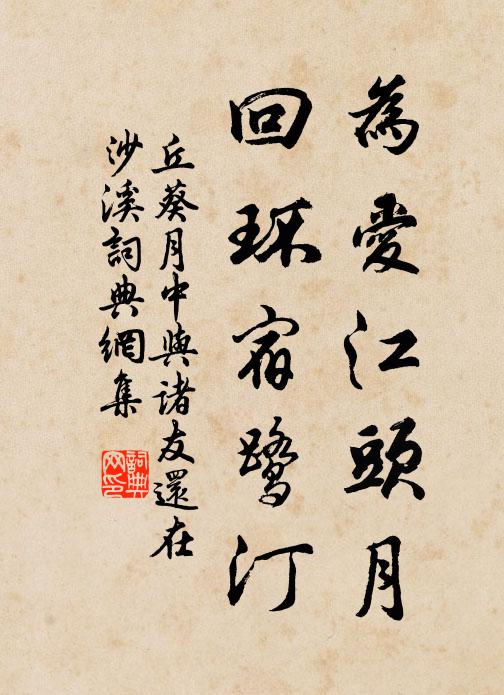 為愛江頭月
回環宿鷺汀
丘葵月中與諸友還在
沙溪詞典網集
詞典
网印